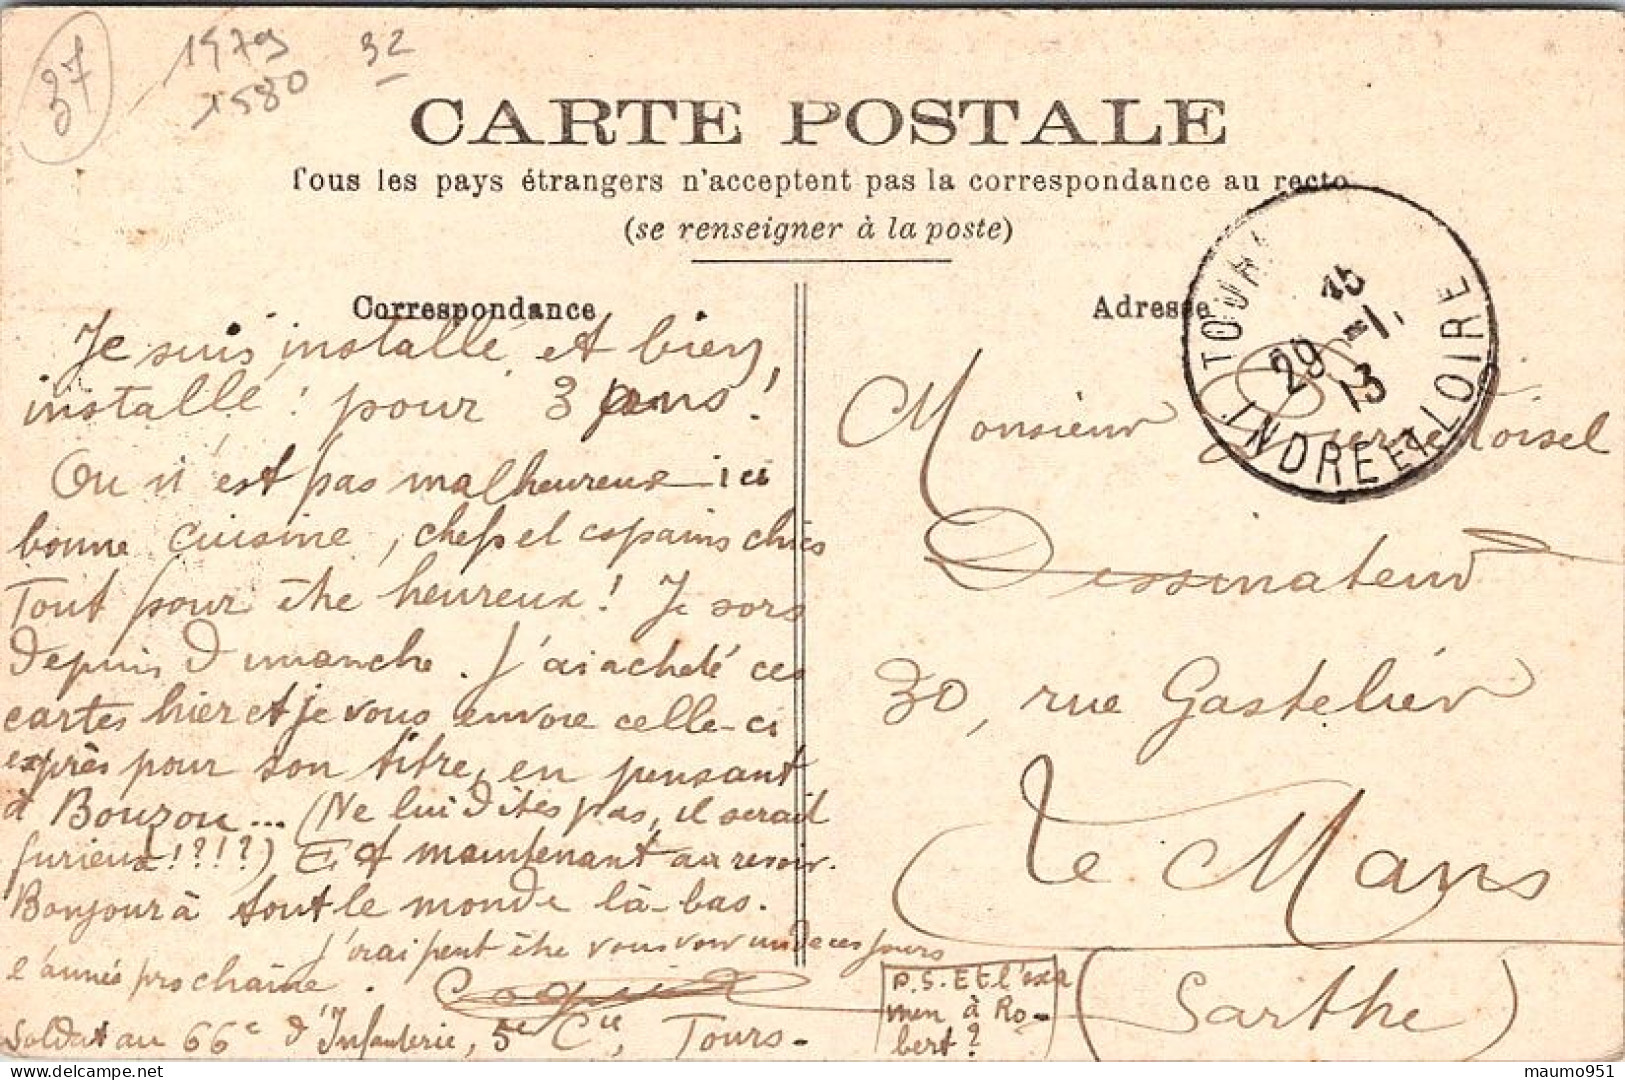 37
1579
1580
32
CARTE POSTALE
Tous les pays étrangers n'acceptent pas la correspondance au recto
(se renseigner à la poste)
Correspondance
Je suis installé et bien
installé ! pour 3 ans !
On n'est pas malheureux ici
bonne cuisine, chefs et copains chics
Tout pour être heureux ! Je sors
depuis Dimanche. J'ai acheté ces
cartes hier et je vous envoie celle-ci
exprès pour son titre, en pensant
à Bouzou... (Ne lui dites pas, il serait
furieux !?!?) Et maintenant au revoir.
Bonjour à tout le monde là-bas.
J'irai peut être vous voir un de ces jours
l'année prochaine.
Soldat au 66e d'Infanterie, 5e Cie, Tours.
P.S. Et l'exa
men à Ro-
bert ?
Adresse
TOURS
15
29 -1.
13
INDRE ET LOIRE
Monsieur
Dessinateur
30, rue Gastelier
Le Mans
(Sarthe)
maumo951